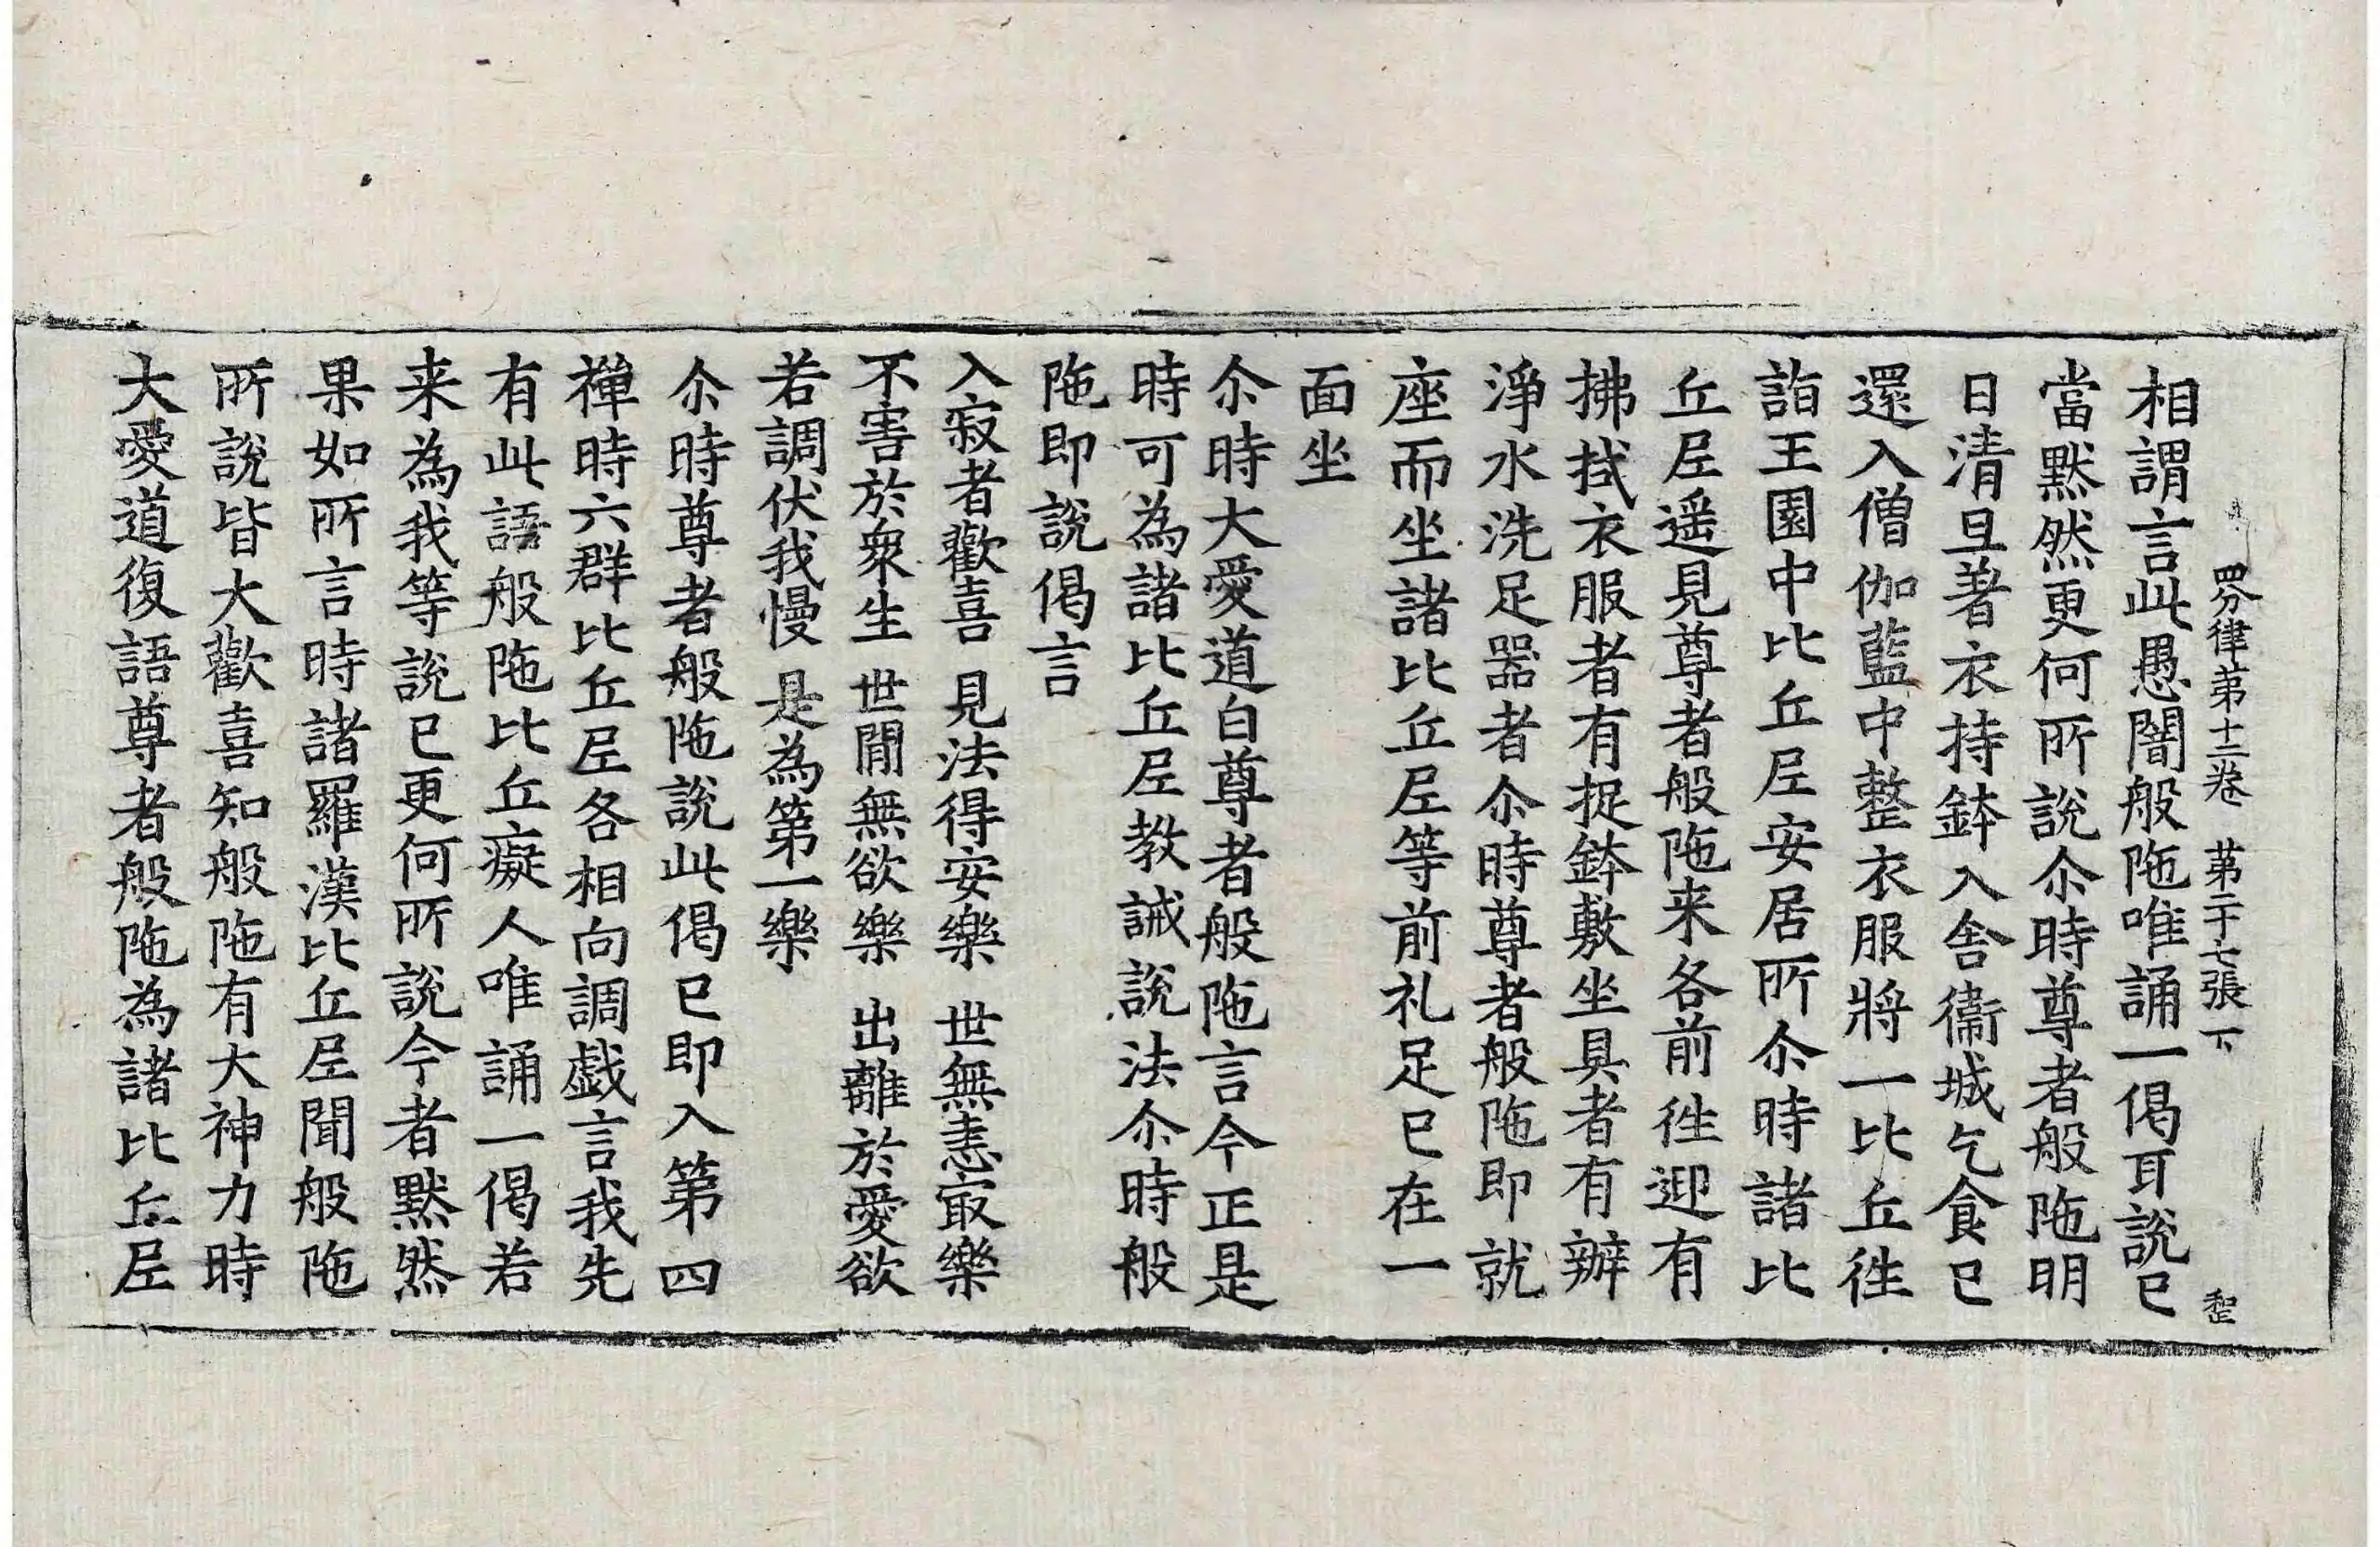 四分律苐十二卷　苐二十七張　下　𦤶
相謂言此愚闇般陁唯誦一偈耳說已
當默然更何所說尒時尊者般陁明
日清旦著衣持鉢入舍衞城乞食已
還入僧伽藍中整衣服將一比丘徃
詣王園中比丘𡰱安居所尒時諸比
丘𡰱遥見尊者般陁来各前徃迎有
拂拭衣服者有捉鉢敷坐具者有辦
淨水洗足器者尒時尊者般陁即就
座而坐諸比丘𡰱等前礼足已在一
面坐
尒時大愛道白尊者般陁言今正是
時可為諸比丘𡰱教誡說法尒時般
陁即說偈言
入寂者歡喜　見法得安樂　世無恚冣樂
不害於衆生　世閒無欲樂　出離於愛欲
若調伏我慢　是為第一樂
尒時尊者般陁說此偈已即入第四
禪時六群比丘𡰱各相向調戯言我先
有此語般陁比丘癡人唯誦一偈若
来為我等說已更何所說今者默然
果如所言時諸羅漢比丘𡰱聞般陁
所說皆大歡喜知般陁有大神力時
大愛道復語尊者般陁為諸比丘𡰱